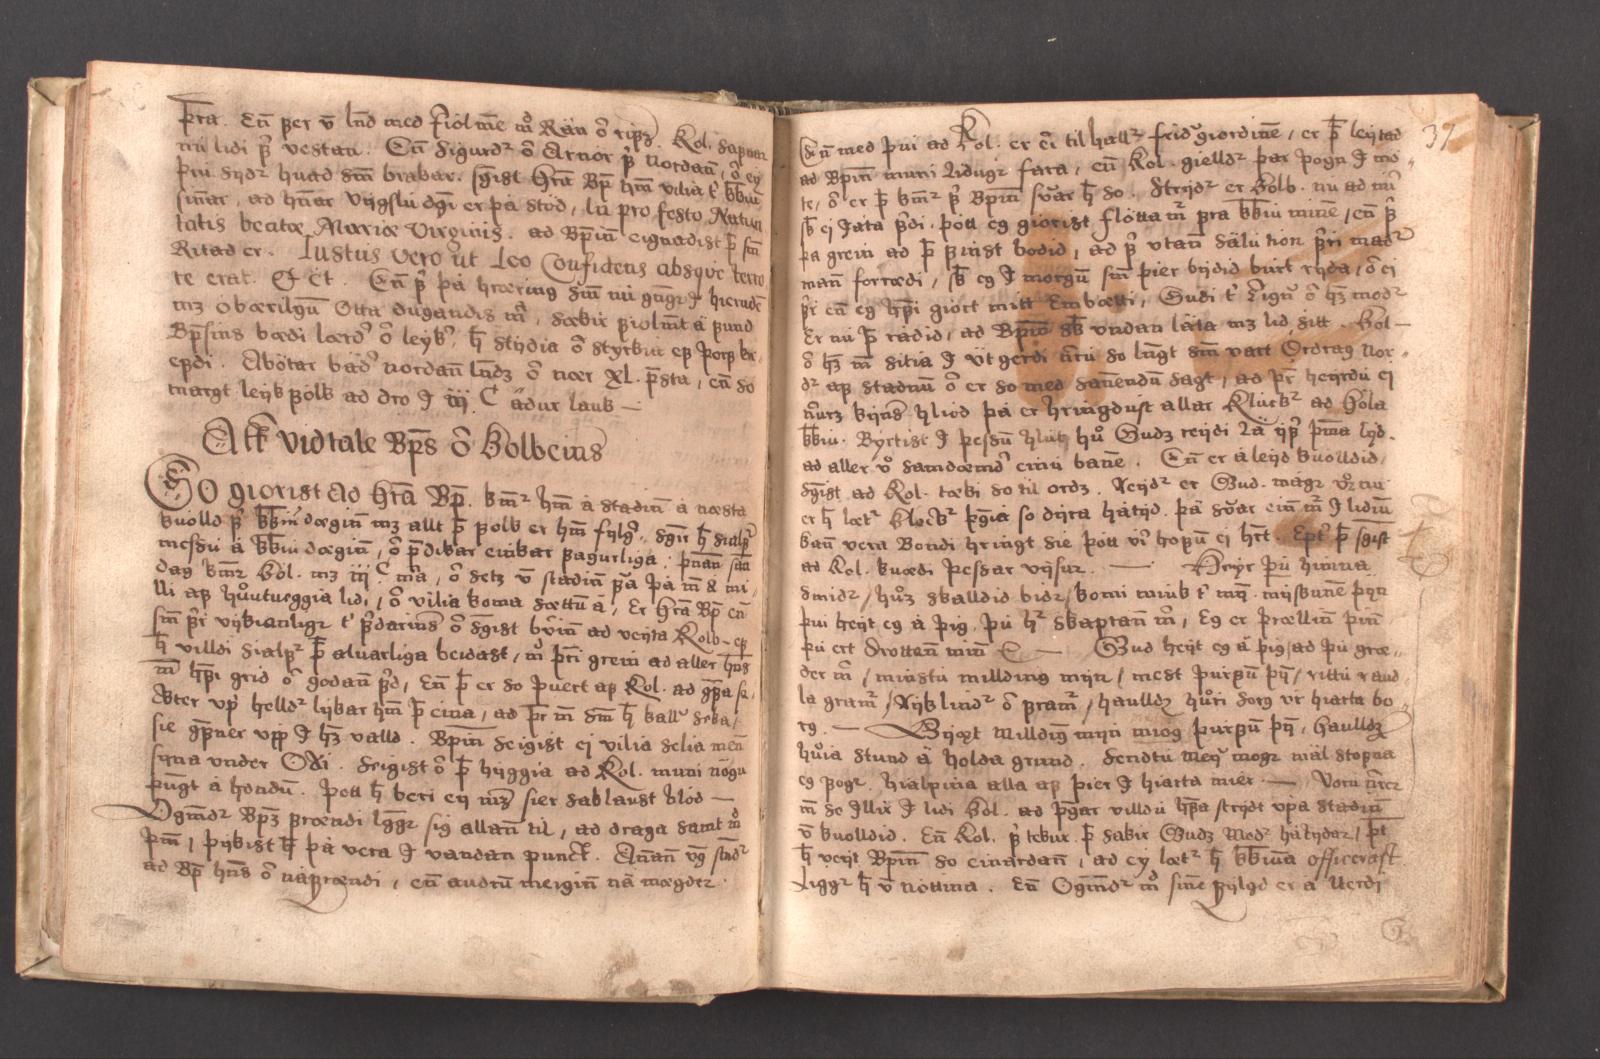 þra. Eñ þer v̄ lñd med fiölm̃e m̊ Rän õ ripz. Kol. sapnar
nu lidi p̃ vestan. Eñ Sigurdr õ Arnór p̃ nordañ, õ ey
þui sydr huad sm̃ brakar. sḡist Hr̃a Bp̃ hm̃ vilia t' kk̃iu
siñar, ad hñar vijgslu dḡi er þa stod, In pro festo Natiu
tatis beatæ Mariæ Virginis. ad Bp̃iñ eignadist þ̃ sm̃
Ritad er. Iustus vero ut Leo Confidens absqve terro
re erat. &c̃t. Eñ p̃ þä hræring sm̃ nu gn̄gr I hieradē
mz obærilgū Otta dugandis m̃a, sækir fiolmt ä fund
Bp̃sins bædi lærdr̃ õ leykr̃, h̃ stydia õ styrkia ep þorf kr-
efdi. Abötar bädr̃ nordañ lñdz õ nær XL. p̃sta, eñ so
margt leykfolk ad dro I iij C ädur lauk —
Att vidtale Bp̃s õ Kolbeins
SO giorist Ad Hr̃a Bp̃. kmr̃ hm̃ ä stadiñ ä næsta
kuolld p̃ kk̃iu dægiñ mz allt þ̃ folk er hm̃ fylg̃. sḡir h̃ sialfr̃
messu ä kk̃iu dægiñ, õ p̃dikar einkar fagurliga. þñan sm̃
dag kmr̃ Kol. mz iij C m̃a, õ setz v̄ stadiñ
lli af hůutueggia lidi, õ vilia koma sættū ä, Er Hr̃a Bp̃ eñ
sm̃ p̃r vijkianligr t' p̃darins õ sḡist bv̄iñ ad veyta Kolb- ep
h̃ villdi sialfr̃ þ̃ aluarliga beidast, m̊ þr̃i grein ad aller hñs
m̃ hp̃i grid õ godañ p̃d, Eñ þ̃ er so þuert af Kol. ad gp̃a
ekter vp̃ helldr lijkar hm̃ þ̃ eina, ad þr̃ m̃ sm̃ h̃ kallr̃ seka,
sie gp̃ner vpp I hz̃ valld. Bp̃iñ seigist ei vilia selia meñ
sijna under Oxi. seigist õ þ̃ hyggia ad Kol. muni nögu
þungt ä hondū. þott h̃ beri ey mz sier saklaust blöd —
Ogm̃dr Bp̃z frændi lggr sig allañ til, ad draga samt m̊
þm̃, þykist þ̃ þä vera I vandan punct. Añañ vḡ stdr̃
ad Bp̃ hñs õ näfrændi, eñ audrū meigiñ nä mægder.
37
Eñ med þui ad Kol. er ei til hallr̃ fridr̃giordiñe, er þ̃ leytad
ad Bp̃iñ muni lidugr fara, eñ Kol. gielldr þar þogn I mo-
te, õ er þ̃ kmr̃ p̃ Bp̃iñ suar h̃ so. Strydr er Kolb. nu ad mr̃
sk̃ ei Iata p̃di. þott eg giorist flötta m̃r fra kk̃iu miñe, eñ p̃
þa grein ad þ̃ fiñst bodid, ad p̃ vtañ sälu tion
mañ forrædi, sk̃ eg I morgū sm̃ þier bydid burt ryda, õ ei
p̃r eñ eg hp̃i giort mitt Embætti, Gudi t' lign̄r õ hz̃ modr
Er nu þ̃ rädid, ad Bp̃iñ sk̃ vndan läta mz lid sitt. Kol-
õ hz̃ m̃ sitia I vtgerdi añu so lngt sm̃ vatt Ordrag nor-
dr af stadnū õ er so med sañendū sagt, ad þr̃ heyrdu ei
nr̃urz kyns hliod þä er hringdust allar Klückr ad Hola
kk̃iu. Byrtist I þessū hlut hů Gudz reydi lä yfr̃ þm̃a lyd.
ad aller vr̊ samdæmdr̃ einu bañe. Eñ er ä leyd kuolldid,
sḡist ad Kol. tæki so til ordz. Reydr er Gud. mägr vr̃ nu
er h̃ lætr klockr þḡia so dyra hätyd. þä suar eiñ m̃r I lidiñu
kañ vera Bondi hringt sie þott vr̃ hopū ei hr̃t. Eptr̃ þ̃ sḡist
ad Kol. kuædi þessar vysur. — Heyr þu himna
smidr, huz̊ skalldid bidr, komi miuk t' mȳ. myskuñe þyn
þui heyt eg ä þig, þu hr̃ skaptañ m̃, Eg er þrælliñ þiñ
þu ert drotteñ miñ C — Gud heyt eg ä þig, ad þu græ-
der m̃, minstu millding myn, mest þurfū þȳ, rittu raud-
la gramr̃, Ryklindr õ framr̃, haulldz hur̊i sorg vr hiarta bo
rg. — Gijæt Milldiñg myn miog þurfū þȳ, haulldz
hůia stund ä holda grund. Sendtu meyr̃ mogr mäl stopna
eg fogr. hialpina alla af þier I hiarta mier — Voru nr̃er
m̃ so Illir I lidi Kol. ad þḡar villdu hp̃a strydt vpa stadiñ
v̄ kuolldid. Eñ Kol. p̃ tekur þ̃ sakir Gudz Modr hätydar, þt
h̃ veyt Bp̃iñ so einardañ, ad ey lætr h̃ kk̃iuna officeralst.
Liggr h̃ v̄ nottina. Eñ Ogm̃dr m̊ siñe fylgd er ä Verdi